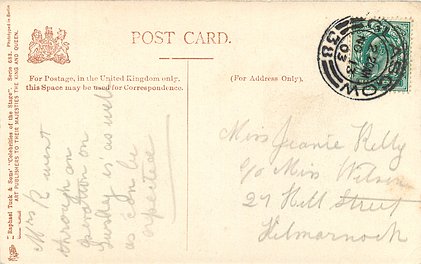 POST CARD.
For Postage, in the United Kingdom only,
this Space may be used for Correspondence.
(For Address Only).
Mrs R went
through an
operation on
Sunday is as well
as can be
expected
Miss Jeanie Kelly
C/o Miss Wilson
27 Hill Street
Kilmarnock
GLASGOW
03
38
Raphael Tuck & Sons' "Celebrities of the Stage". Serie 653. Photographed in Berlin
ART PUBLISHERS TO THEIR MAJESTIES THE KING AND QUEEN.